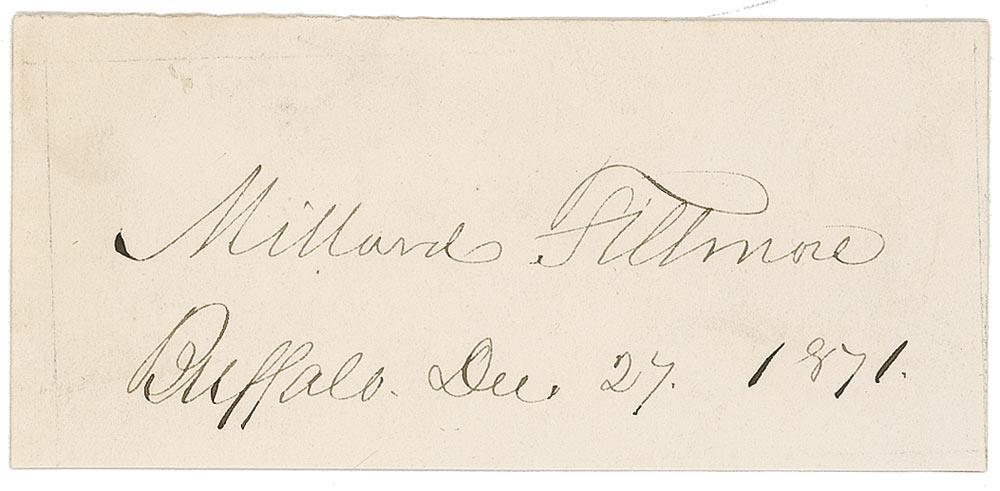 Millard Fillmore
Buffalo. Dec. 27. 1871.